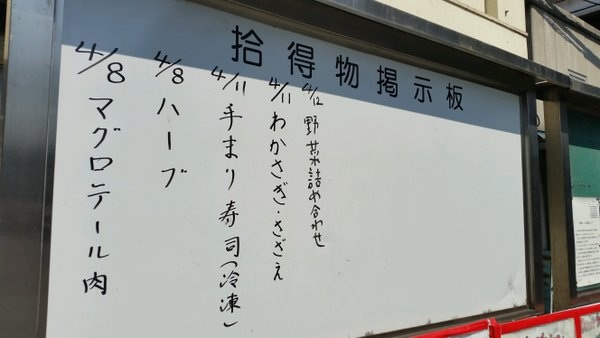 拾得物掲示板
4/8 マグロテール肉
4/8 ハーブ
4/11 手まり寿司(冷凍)
4/11 わかさぎ・さざえ
4/12 野菜詰め合わせ